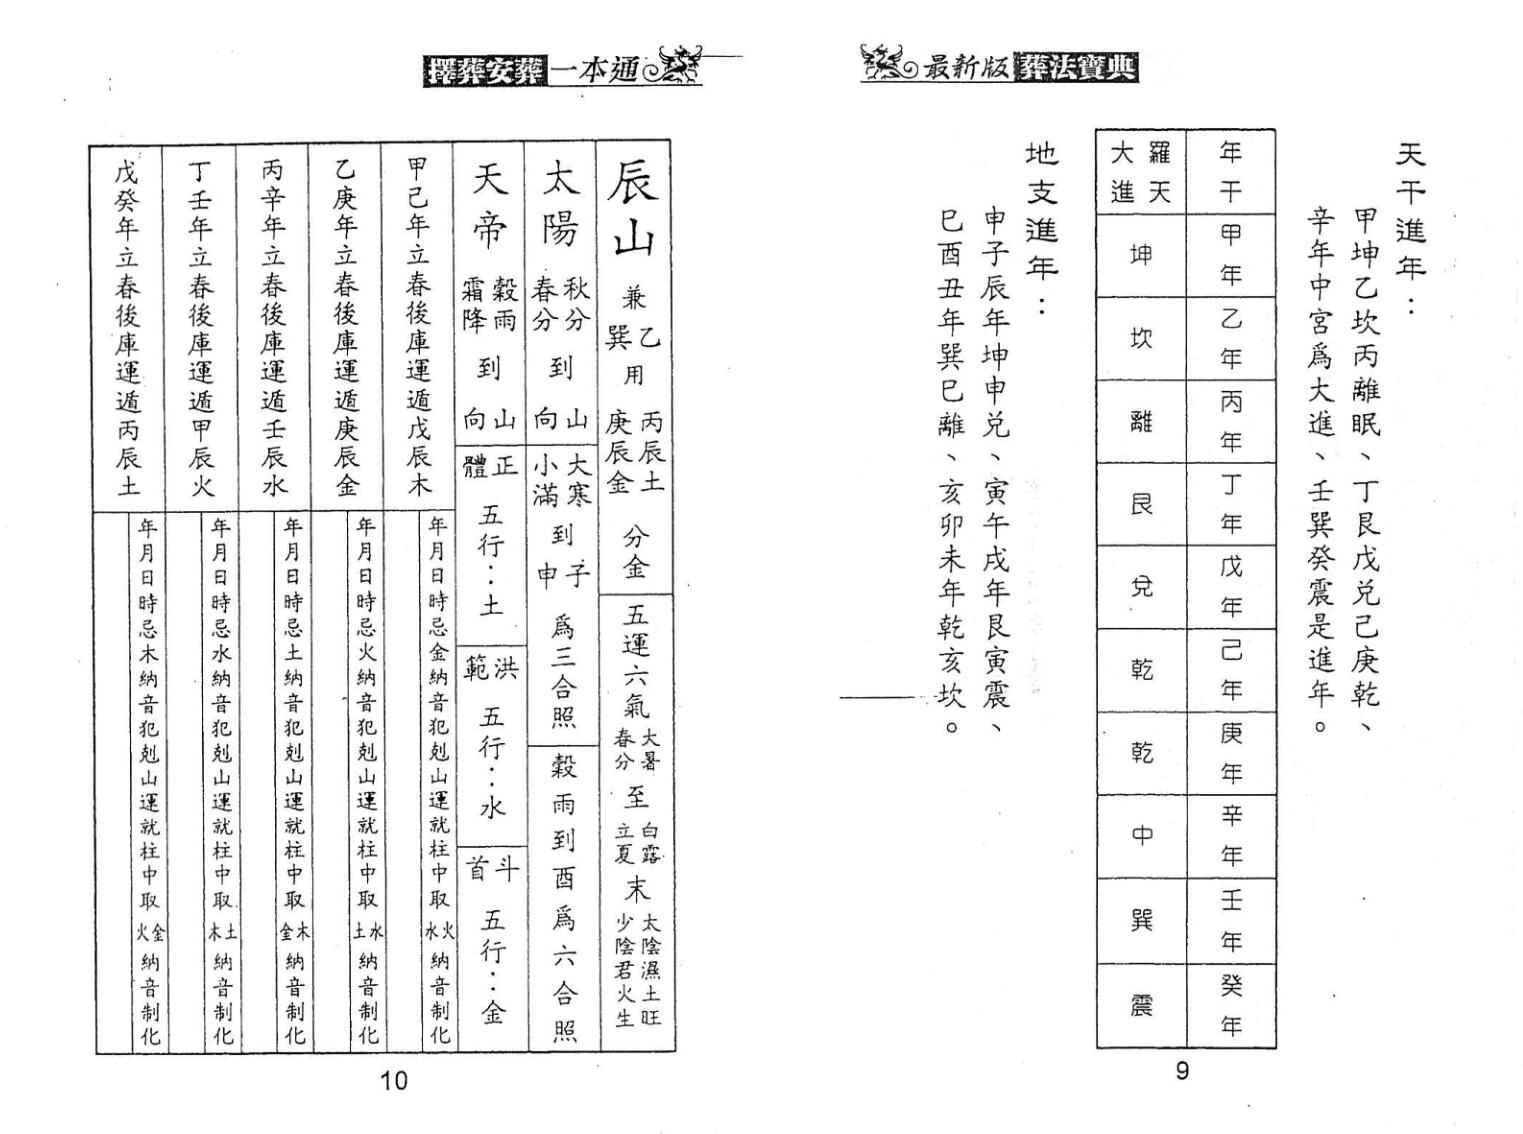 最新版葬法寶典
天干進年：
甲坤乙坎丙離眠、丁艮戊兑己庚乾、
辛年中宮爲大進、壬巽癸震是進年。
年干
甲年
乙年
丙年
丁年
戊年
己年
庚年
辛年
壬年
癸年
羅天大進
坤
坎
離
艮
兌
乾
乾
中
巽
震
地支進年：
申子辰年坤申兑、寅午戌年艮寅震、
巳酉丑年巽巳離、亥卯未年乾亥坎。
9
擇葬安葬一本通
辰山兼乙巽用丙辰土庚辰金分金
五運六氣大暑春分至白露立夏末太陰濕土旺少陰君火生
太陽秋分春分到山向
大寒小滿到子申爲三合照
穀雨到酉爲六合照
天帝穀雨霜降到山向
正體五行：土
洪範五行：水
斗首五行：金
甲己年立春後庫運遁戊辰木
年月日時忌金納音犯剋山運就柱中取火水納音制化
乙庚年立春後庫運遁庚辰金
年月日時忌火納音犯剋山運就柱中取水土納音制化
丙辛年立春後庫運遁壬辰水
年月日時忌土納音犯剋山運就柱中取木金納音制化
丁壬年立春後庫運遁甲辰火
年月日時忌水納音犯剋山運就柱中取土木納音制化
戊癸年立春後庫運遁丙辰土
年月日時忌木納音犯剋山運就柱中取金火納音制化
10